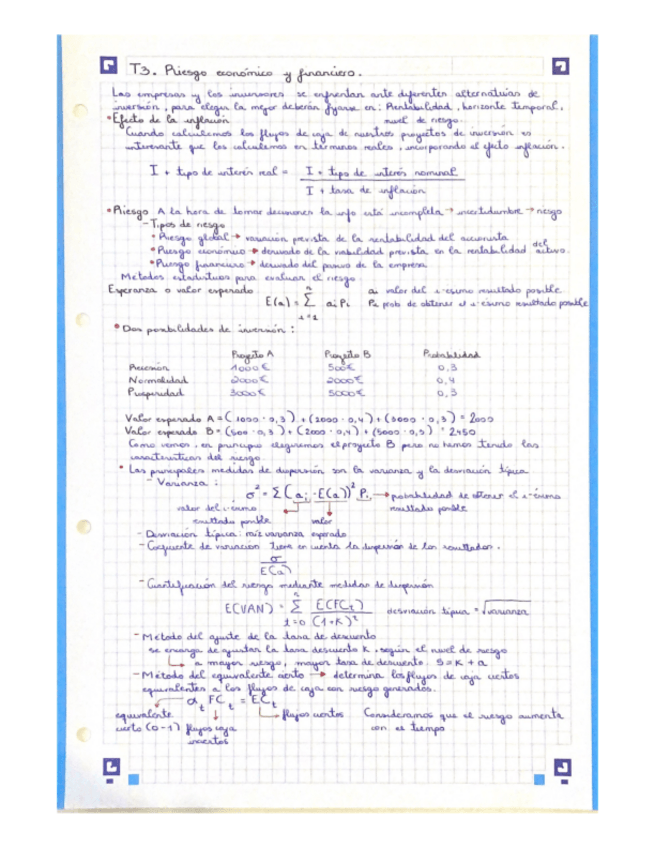 T3. Riesgo económico y financiero.
Las empresas y los inversores se enfrentan ante diferentes alternativas de
inversión, para elegir la mejor deberán fijarse en: Rentabilidad, horizonte temporal,
nivel de riesgo.
• Efecto de la inflación
Cuando calculemos los flujos de caja de nuestros proyectos de inversión es
interesante que los calculemos en términos reales, incorporando el efecto inflación.
1 + tipo de interés real = 1 + tipo de interés nominal
1 + tasa de inflación
• Riesgo A la hora de tomar decisiones la info está incompleta → incertidumbre → riesgo
- Tipos de riesgo
• Riesgo global → variación prevista de la rentabilidad del accionista
• Riesgo económico → derivado de la viabilidad prevista en la rentabilidad del activo.
• Riesgo financiero → derivado del pasivo de la empresa
Métodos estadísticos para evaluar el riesgo.
Esperanza o valor esperado
E(a) = Σ ai Pi
n
i=1
ai valor del i-esimo resultado posible
Pi prob de obtener el i-esimo resultado posible
• Dos posibilidades de inversión :
Proyecto A Proyecto B Probabilidad
Recesión 1000€ 500€ 0,3
Normalidad 2000€ 2000€ 0,4
Prosperidad 3000€ 5000€ 0,3
Valor esperado A = (1000 · 0,3) + (2000 · 0,4) + (3000 · 0,3) = 2000
Valor esperado B = (500 · 0,3) + (2000 · 0,4) + (5000 · 0,3) = 2450
Como vemos, en principio elegiremos el proyecto B pero no hemos tenido las
características del riesgo
• Las principales medidas de dispersión son la varianza y la desviación típica
- Varianza :
σ² = Σ (ai - E(a))² Pi → probabilidad de obtener el i-ésimo
resultado posible
valor del i-ésimo
resultado posible
valor
esperado
- Desviación típica: raíz varianza
- Coeficiente de variación tiene en cuenta la dispersión de los resultados.
σ
E(a)
- Cuantificación del riesgo mediante medidas de dispersión
E(VAN) = Σ E(FCt) desviación típica = √varianza
n
t=0 (1+K)t
- Método del ajuste de la tasa de descuento
se encarga de ajustar la tasa descuento K, según el nivel de riesgo
a mayor riesgo, mayor tasa de descuento. S = K + a
- Método del equivalente cierto → determina los flujos de caja ciertos
equivalentes a los flujos de caja con riesgo generados.
αt FCt = ECt
equivalente
cierto (0-1)
flujos caja
inciertos
flujos ciertos
Consideramos que el riesgo aumenta
con el tiempo